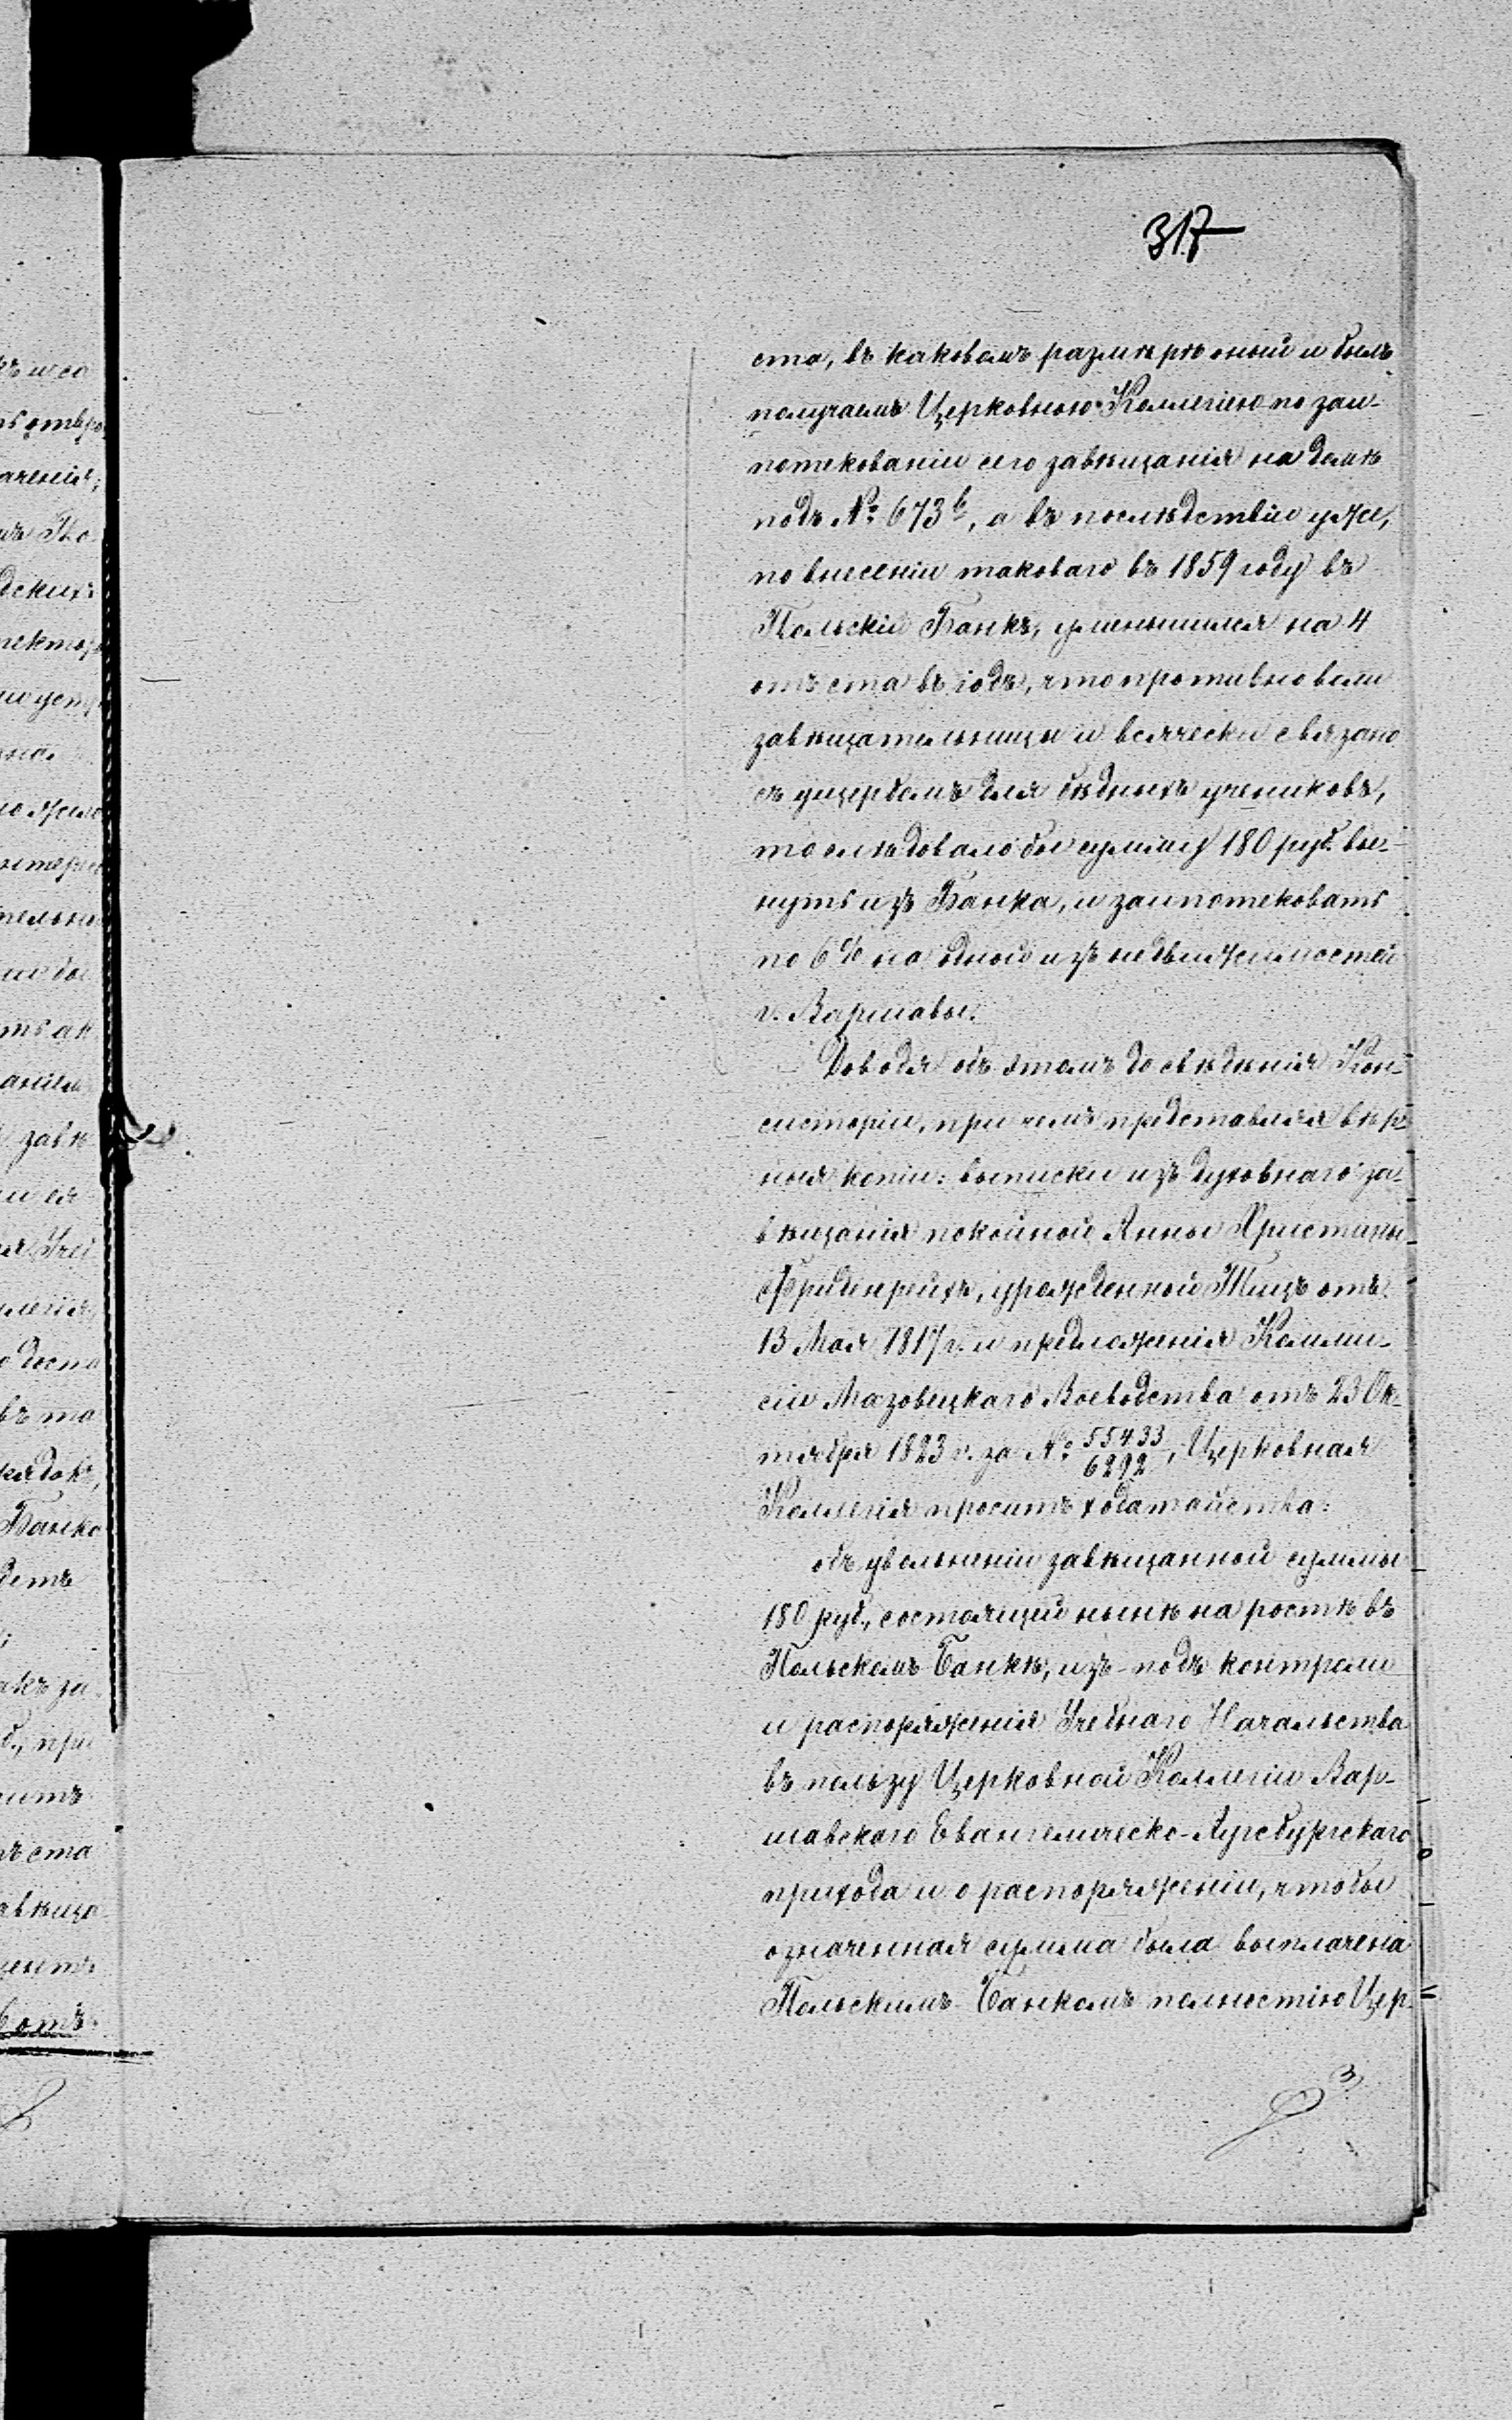 317
ста, въ каковомъ размѣрѣ оный и былъ
получаемъ Церковною Коллегіею по заи-
потекованіи сего завѣщанія на домѣ
подъ № 673b, а въ послѣдствіи уже,
по внесеніи таковаго въ 1859 году въ
Польскій Банкъ, уменьшился на 4
отъ ста въ годъ, что противно воли
завѣщательницы и всячески связано
съ ущербомъ для бѣдныхъ учениковъ,
то слѣдовало бы сумму 180 руб. вы-
нуть изъ Банка, и заипотековать
по 6% на одной изъ недвижимостей
г. Варшавы.
Доводя объ этомъ до свѣдѣнія Кон-
систоріи, при чемъ представляя вѣр-
ныя копіи: выписки изъ духовнаго за-
вѣщанія покойной Анны Христины
Фриденрейхъ, урожденной Тицъ отъ
13 Мая 1817 г. и предложенія Коммис-
сіи Мазовецкаго Воеводства отъ 23 Ок-
тября 1823 г. за № 55433/6292, Церковная
Коллегія проситъ ходатайства:
объ увольненіи завѣщанной суммы
180 руб., состоящей нынѣ на ростѣ въ
Польскомъ Банкѣ, изъ-подъ контроли
и распоряженія Учебнаго Начальства
въ пользу Церковной Коллегіи Вар-
шавскаго Евангелическо-Аугсбургскаго
прихода и о распоряженіи, чтобы
означенная сумма была выплачена
Польскимъ Банкомъ полностію Цер-
3